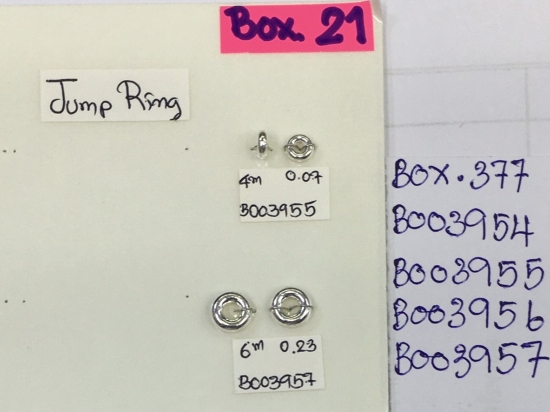 Box. 21
Jump Ring
4m 0.07
B003955
6m 0.23
B003957
BOX.377
B003954
B003955
B003956
B003957